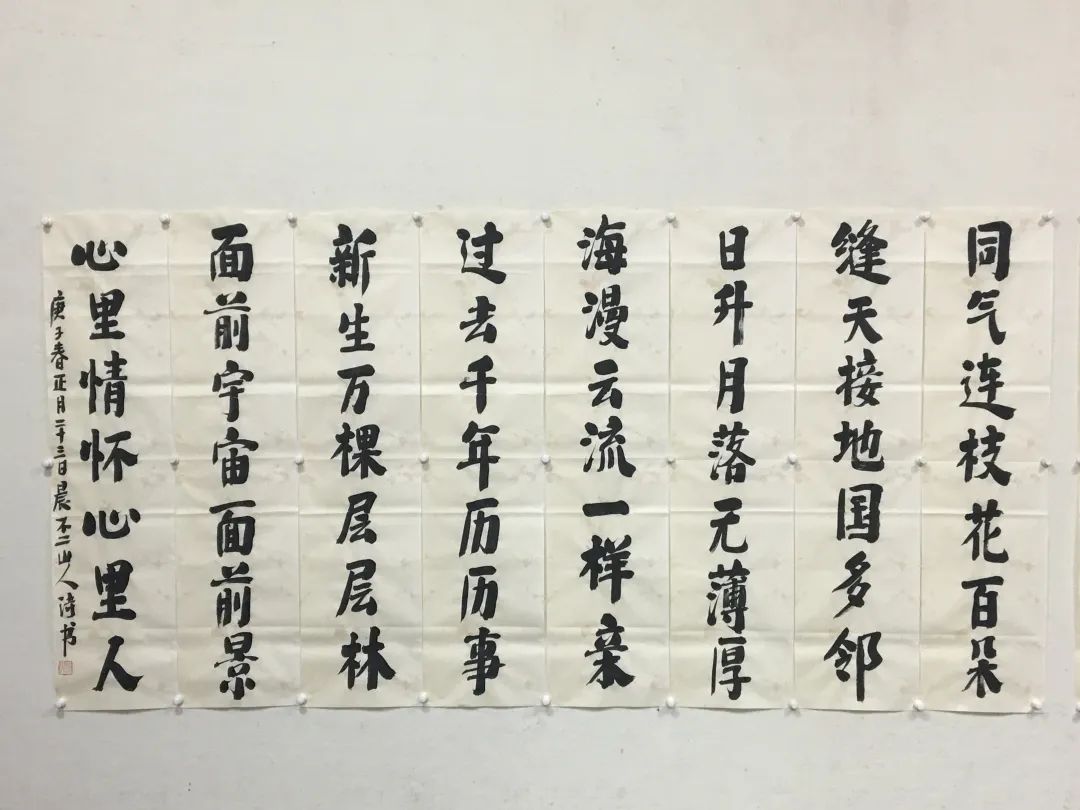 同气连枝花百朵
缝天接地国多邻
日升月落无薄厚
海漫云流一样亲
过去千年历历事
新生万棵层层林
面前宇宙面前景
心里情怀心里人
庚子春正月二十三日晨不二山人诗书